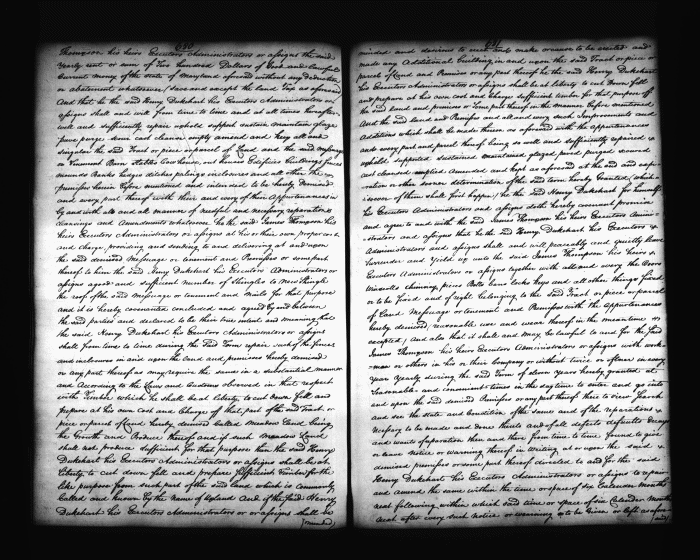 640
Thompson his heirs Executors Administrators or assigns the said
Yearly rent or sum of Two hundred Dollars of Good and lawful
Current money of the state of Maryland without any deduction
or abatement whatsoever
And that he the said Henry Dukehart his Executors Administrators or
assigns shall and will from time to time and at all times hereafter
well and sufficiently repair uphold support sustain maintain glaze
pave purge scour cleanse empty amend and keep all and
singular the said Tract or piece or parcel of Land and the said Messuage
or Tenement Barn stables Cow house, out houses Edifices Buildings fences
mounds Banks hedges ditches palings inclosures and all other the
premises herein before mentioned and intended to be hereby demised
and every part thereof with their and every of their Appurtenances in
by and with all and all manner of needful and necessary reparations
and Amendments whatsoever he the said James Thompson his
heirs Executors Administrators or assigns at his or their own proper cost
and charge providing and sending to and delivering at and upon
the said demised Messuage or tenement and Premises or some part
thereof to him the said Henry Dukehart his Executors Administrators or
assigns a good and sufficient number of Shingles to New Shingle
the roof of the said Messuage or tenement and Nails for that purpose
and it is hereby covenanted concluded and agreed by and between
the said parties and declared to be their true intent and meaning that
the said Henry Dukehart his Executors Administrators or assigns
shall from time to time during the said Term repair such of the fences
and inclosures in and upon the land and premises hereby demised
or any part thereof as may require the same in a substantial manner
and According to the Laws and Customs observed in that respect
with Timber which he shall be at Liberty to cut Down fell and
prepare at his own Cost and Charge off that part of the said Tract or
piece or parcel of Land hereby demised called Meadow Land being
the Growth and Produce thereof and if such Meadow Land
shall not produce sufficient for that purpose then the said Henry
Dukehart his Executors Administrators or assigns shall be at
Liberty to cut down fell and prepare sufficient Timber for the
like purpose from such part of the said Land which is commonly
Called and known by the Name of Upland And if the said Henry
Dukehart his Executors Administrators or assigns shall be
(minded)
641
minded and desirous to erect and make or cause to be erected and
made any Additional building in and upon the said Tract or piece or
parcel of Land and Premises or any part thereof he the said Henry Dukehart
his Executors Administrators or assigns shall be at Liberty to cut Down fell
and prepare at his own cost and charge sufficient timber for that purpose off
the said land and premises or some part thereof in the manner before mentioned
And the said Land and Premises and all and every such Improvements and
Additions which shall be made thereon as aforesaid with the appurtenances
and every part and parcel thereof being so well and sufficiently repaired
upheld supported sustained maintained glazed paved purged scoured
cleansed emptied Amended and kept as aforesaid at the end and
or other sooner determination of the said term hereby Granted (which
soever of them shall first happen) he the said Henry Dukehart for himself
his Executors Administrators and assigns doth hereby covenant promise
and agree to and with the said James Thompson his heirs Executors Admini
strators and assigns that he the said Henry Dukehart his Executors
Administrators and assigns shall and will peaceably and quietly leave
Surrender and Yield up unto the said James Thompson his heirs
Executors Administrators or assigns together with all and every the Doors
Locks Keys and all other things fixed
or to be fixed and of right belonging to the said Tract or piece or parcel
of Land Messuage or tenement and Premises with the appurtenances
hereby demised, reasonable use and wear thereof in the meantime
excepted, and also that it shall and may be lawful to and for the said
James Thompson his heirs Executors Administrators or assigns with work-
men or others in his or their Company or without twice or oftener in every
Year Yearly during the said Term of eleven Years hereby granted at
Seasonable and convenient times in the daytime to enter and go into
and upon the said demised Premises or any part thereof there to view Search
and see the state and Condition of the same and of the reparations
Necessary to be made and Done there and of all defects defaults decays
and wants of reparation then and there from time to time found to give
or leave Notice or warning thereof in Writing at or upon the said
demised premises or some part thereof directed to and for the said
Henry Dukehart his Executors Administrators or assigns to repair
and amend the same within the time or space of six Calendar Months
next following within which said time or space of six Calendar Months
next after every such notice or warning to be given or left as afore
(said)